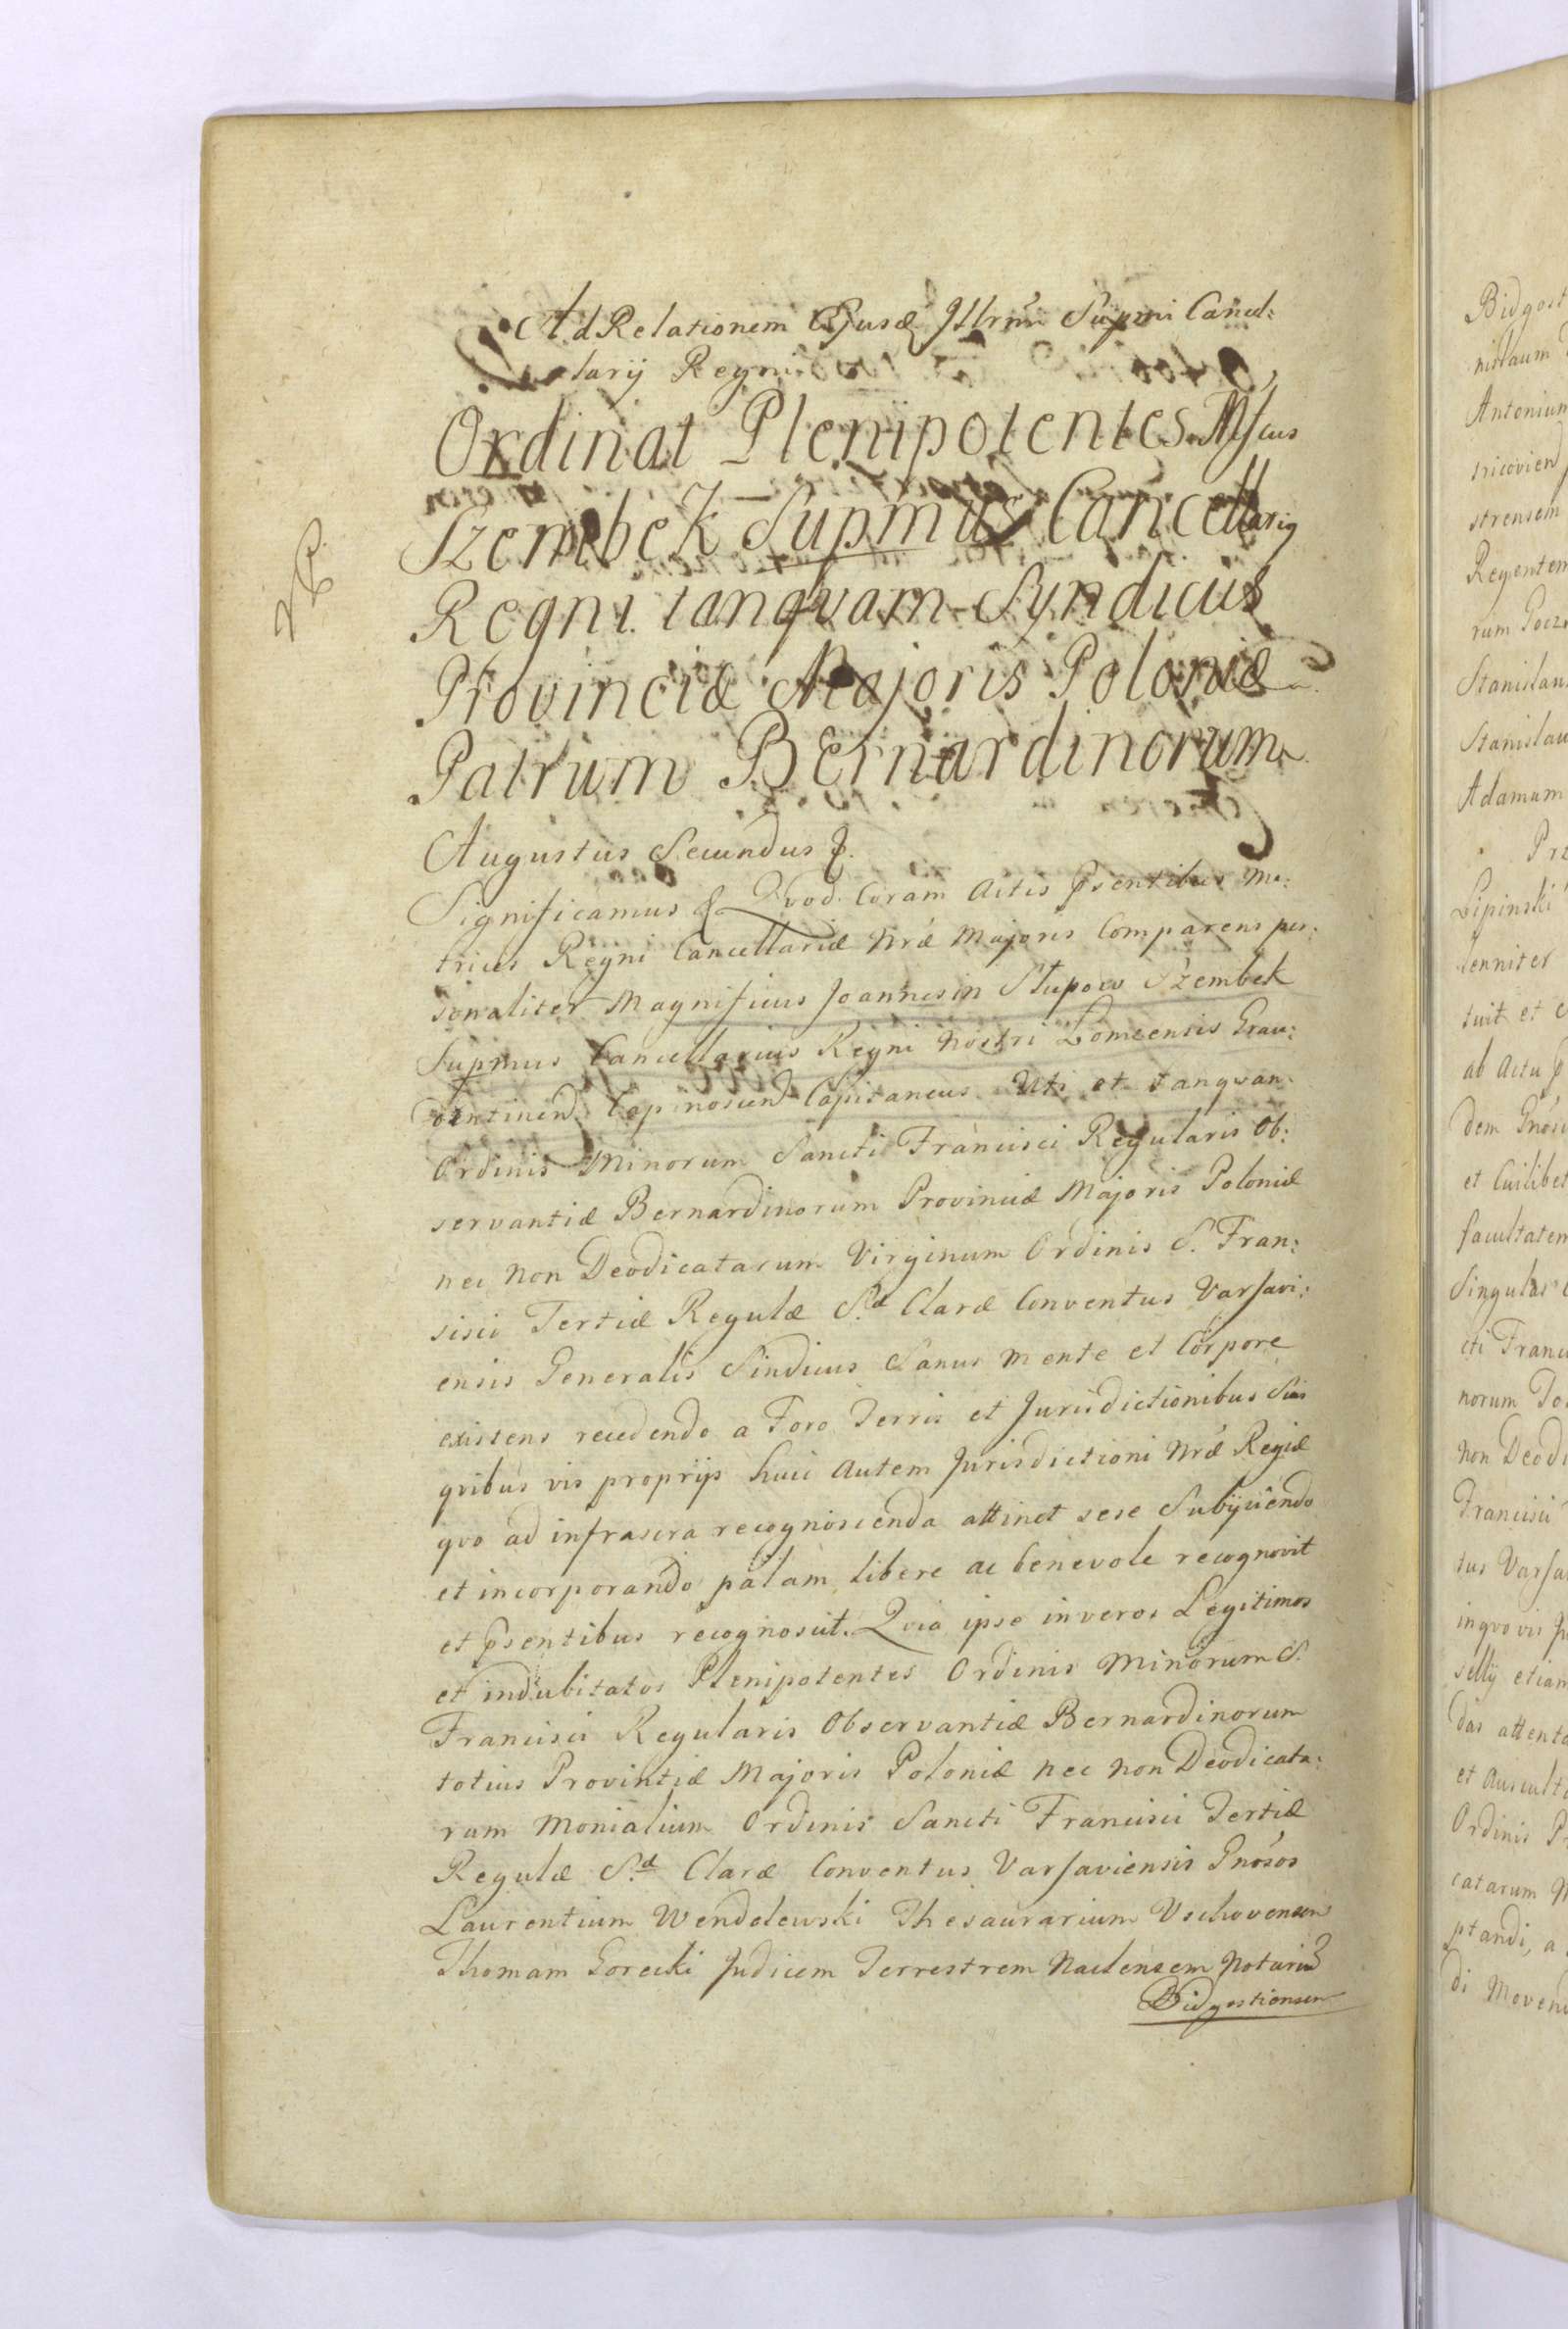 Ad Relationem Ejusd Illrmi Supmi Cancel:
larij Regni
Ordinat Plenipotentes Mfcus
Szembek Supmus Cancellariq
Regni tanqvam Syndicus
Provinciæ Majoris Poloniæ
Patrum Bernardinorum
Augustus Secundus &.
Significamus & Qvod Coram Actis psentibus Me:
trices Regni Cancellariæ Nræ Majoris Comparens per:
sonaliter Magnificus Joannes in Slupow Szembek
Supmus Cancellarius Regni Nostri Lomcensis Grau:
Capitaneus Uti et tanqvam
Ordinis Minorum Sancti Francisci Regularis Ob:
servantiæ Bernardinorum Provinciæ Majoris Poloniæ
nec non Deodicatarum Virginum Ordinis S. Fran:
cisci Tertiæ Regulæ S.æ Claræ Conventus Varsavi:
ensis Generalis Sindicus Sanus mente et Corpore
existens recedendo a Foro Terris et Jurisdictionibus Suis
qvibus vis proprijs huic Autem Jurisdictioni Nræ Regiæ
qvo ad infrascra recognoscenda attinet sese Subijciendo
et incorporando palam libere ac benevole recognovit
et psentibus recognoscit. Qvia ipse inveros Legitimos
et indubitatos Plenipotentes Ordinis Minorum S.
Francisci Regularis Observantiæ Bernardinorum
totius Provintiæ Majoris Poloniæ nec non Deodicata:
rum Monialium Ordinis Sancti Francisci Tertiæ
Regulæ S.æ Claræ Conventus Varsaviensis Gnosos
Laurentium Wendolewski Thesaurarium Vschovensem
Thomam Gorecki Judicem Terrestrem Naclensem Notariū
Bidgostiensem
Bidgost
Antonium
strensem
Regentem
Adamum
Lipinski
lenniter
tuit et
ab Actu
et Cuilibet
facultatem
Singulas
norum
non Deodi
Francisci
tus Varsa
inqvovis
et Auscult
Ordinis
catarum
ptandi, a
di Movend